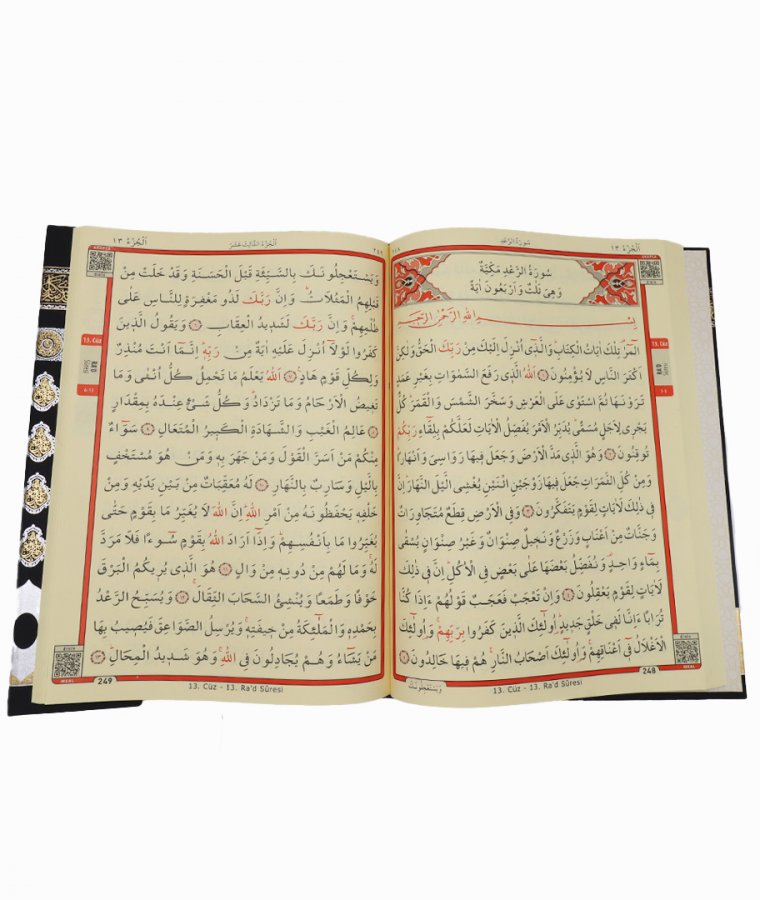 سُورَةُ الرَّعْدِ
اَلْجُزْءُ ١٣
سُورَةُ الرَّعْدِ مَكِّيَّةٌ
وَهِيَ ثَلٰثٌ وَاَرْبَعُونَ اٰيَةً
بِسْمِ اللّٰهِ الرَّحْمٰنِ الرَّحِيمِ
الٓمٓرٰ تِلْكَ اٰيَاتُ الْكِتَابِ وَالَّذٓى اُنْزِلَ اِلَيْكَ مِنْ رَبِّكَ الْحَقُّ وَلٰكِنَّ
اَكْثَرَ النَّاسِ لَا يُؤْمِنُونَ ﴿١﴾ اَللّٰهُ الَّذٖى رَفَعَ السَّمٰوَاتِ بِغَيْرِ عَمَدٍ
تَرَوْنَهَا ثُمَّ اسْتَوٰى عَلَى الْعَرْشِ وَسَخَّرَ الشَّمْسَ وَالْقَمَرَ كُلٌّ
يَجْرٖى لِاَجَلٍ مُسَمًّى يُدَبِّرُ الْاَمْرَ يُفَصِّلُ الْاٰيَاتِ لَعَلَّكُمْ بِلِقَٓاءِ رَبِّكُمْ
تُوقِنُونَ ﴿٢﴾ وَهُوَ الَّذٖى مَدَّ الْاَرْضَ وَجَعَلَ فٖيهَا رَوَاسِىَ وَاَنْهَارًا
وَمِنْ كُلِّ الثَّمَرَاتِ جَعَلَ فٖيهَا زَوْجَيْنِ اثْنَيْنِ يُغْشِى الَّيْلَ النَّهَارَ اِنَّ
فٖى ذٰلِكَ لَاٰيَاتٍ لِقَوْمٍ يَتَفَكَّرُونَ ﴿٣﴾ وَفِى الْاَرْضِ قِطَعٌ مُتَجَاوِرَاتٌ
وَجَنَّاتٌ مِنْ اَعْنَابٍ وَزَرْعٌ وَنَخٖيلٌ صِنْوَانٌ وَغَيْرُ صِنْوَانٍ يُسْقٰى
بِمَٓاءٍ وَاحِدٍ وَنُفَضِّلُ بَعْضَهَا عَلٰى بَعْضٍ فِى الْاُكُلِ اِنَّ فٖى ذٰلِكَ
لَاٰيَاتٍ لِقَوْمٍ يَعْقِلُونَ ﴿٤﴾ وَاِنْ تَعْجَبْ فَعَجَبٌ قَوْلُهُمْ ءَاِذَا كُنَّا
تُرَابًا ءَاِنَّا لَفٖى خَلْقٍ جَدٖيدٍ اُولٰٓئِكَ الَّذٖينَ كَفَرُوا بِرَبِّهِمْ وَاُولٰٓئِكَ
الْاَغْلَالُ فٖٓى اَعْنَاقِهِمْ وَاُولٰٓئِكَ اَصْحَابُ النَّارِ هُمْ فٖيهَا خَالِدُونَ ﴿٥﴾
وَيَسْتَعْجِلُونَكَ
13. Cüz - 13. Ra'd Sûresi
248
13. Cüz
RA'D
Sûresi
1-5
MEAL
اَلْجُزْءُ ١٣
اَلْجُزْءُ الثَّالِثَ عَشَرَ
وَيَسْتَعْجِلُونَكَ بِالسَّيِّئَةِ قَبْلَ الْحَسَنَةِ وَقَدْ خَلَتْ مِنْ
قَبْلِهِمُ الْمَثُلَاتُ وَاِنَّ رَبَّكَ لَذُو مَغْفِرَةٍ لِلنَّاسِ عَلٰى
ظُلْمِهِمْ وَاِنَّ رَبَّكَ لَشَدٖيدُ الْعِقَابِ ﴿٦﴾ وَيَقُولُ الَّذٖينَ
كَفَرُوا لَوْلَٓا اُنْزِلَ عَلَيْهِ اٰيَةٌ مِنْ رَبِّهٖ اِنَّمَٓا اَنْتَ مُنْذِرٌ
وَلِكُلِّ قَوْمٍ هَادٍ ﴿٧﴾ اَللّٰهُ يَعْلَمُ مَا تَحْمِلُ كُلُّ اُنْثٰى وَمَا
تَغٖيضُ الْاَرْحَامُ وَمَا تَزْدَادُ وَكُلُّ شَىْءٍ عِنْدَهُ بِمِقْدَارٍ
﴿٨﴾ عَالِمُ الْغَيْبِ وَالشَّهَادَةِ الْكَبٖيرُ الْمُتَعَالِ ﴿٩﴾ سَوَٓاءٌ
مِنْكُمْ مَنْ اَسَرَّ الْقَوْلَ وَمَنْ جَهَرَ بِهٖ وَمَنْ هُوَ مُسْتَخْفٍ
بِالَّيْلِ وَسَارِبٌ بِالنَّهَارِ ﴿١٠﴾ لَهُ مُعَقِّبَاتٌ مِنْ بَيْنِ يَدَيْهِ وَمِنْ
خَلْفِهٖ يَحْفَظُونَهُ مِنْ اَمْرِ اللّٰهِ اِنَّ اللّٰهَ لَا يُغَيِّرُ مَا بِقَوْمٍ حَتّٰى
يُغَيِّرُوا مَا بِاَنْفُسِهِمْ وَاِذَٓا اَرَادَ اللّٰهُ بِقَوْمٍ سُٓوءًا فَلَا مَرَدَّ
لَهُ وَمَا لَهُمْ مِنْ دُونِهٖ مِنْ وَالٍ ﴿١١﴾ هُوَ الَّذٖى يُرٖيكُمُ الْبَرْقَ
خَوْفًا وَطَمَعًا وَيُنْشِئُ السَّحَابَ الثِّقَالَ ﴿١٢﴾ وَيُسَبِّحُ الرَّعْدُ
بِحَمْدِهٖ وَالْمَلٰٓئِكَةُ مِنْ خٖيفَتِهٖ وَيُرْسِلُ الصَّوَاعِقَ فَيُصٖيبُ بِهَا
مَنْ يَشَٓاءُ وَهُمْ يُجَادِلُونَ فِى اللّٰهِ وَهُوَ شَدٖيدُ الْمِحَالِ ﴿١٣﴾
13. Cüz - 13. Ra'd Sûresi
249
13. Cüz
RA'D
Sûresi
6-13
MEAL